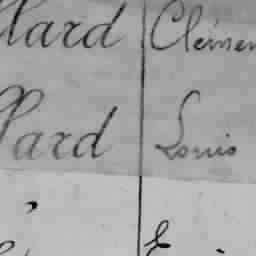 llard Clémen
Pard Louis